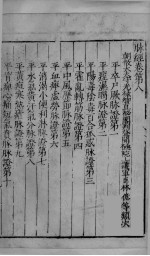 脉經卷第八
朝散大夫守光祿卿直祕閣判登聞檢院上護軍臣林億等類次
平卒尸厥脉證第一
平痓濕暍脉證第二
平陽毒陰毒百合狐惑脉證第三
平霍亂轉筋脉證第四
平中風歷節脉證第五
平血痹虛勞脉證第六
平消渴小便利淋脉證第七
平水氣黃汗氣分脉證第八
平黃疸寒熱瘧脉證第九